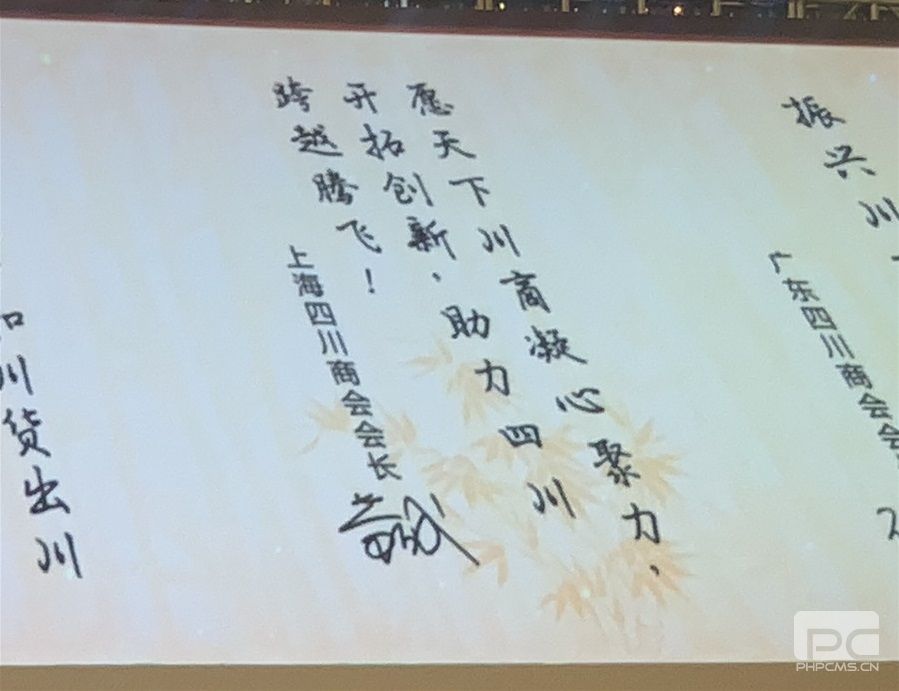 振兴川
广东四川商会会
愿天下川商凝心聚力，
开拓创新，助力四川
跨越腾飞！
上海四川商会会长
川货出川
PC
PHPCMS.CN